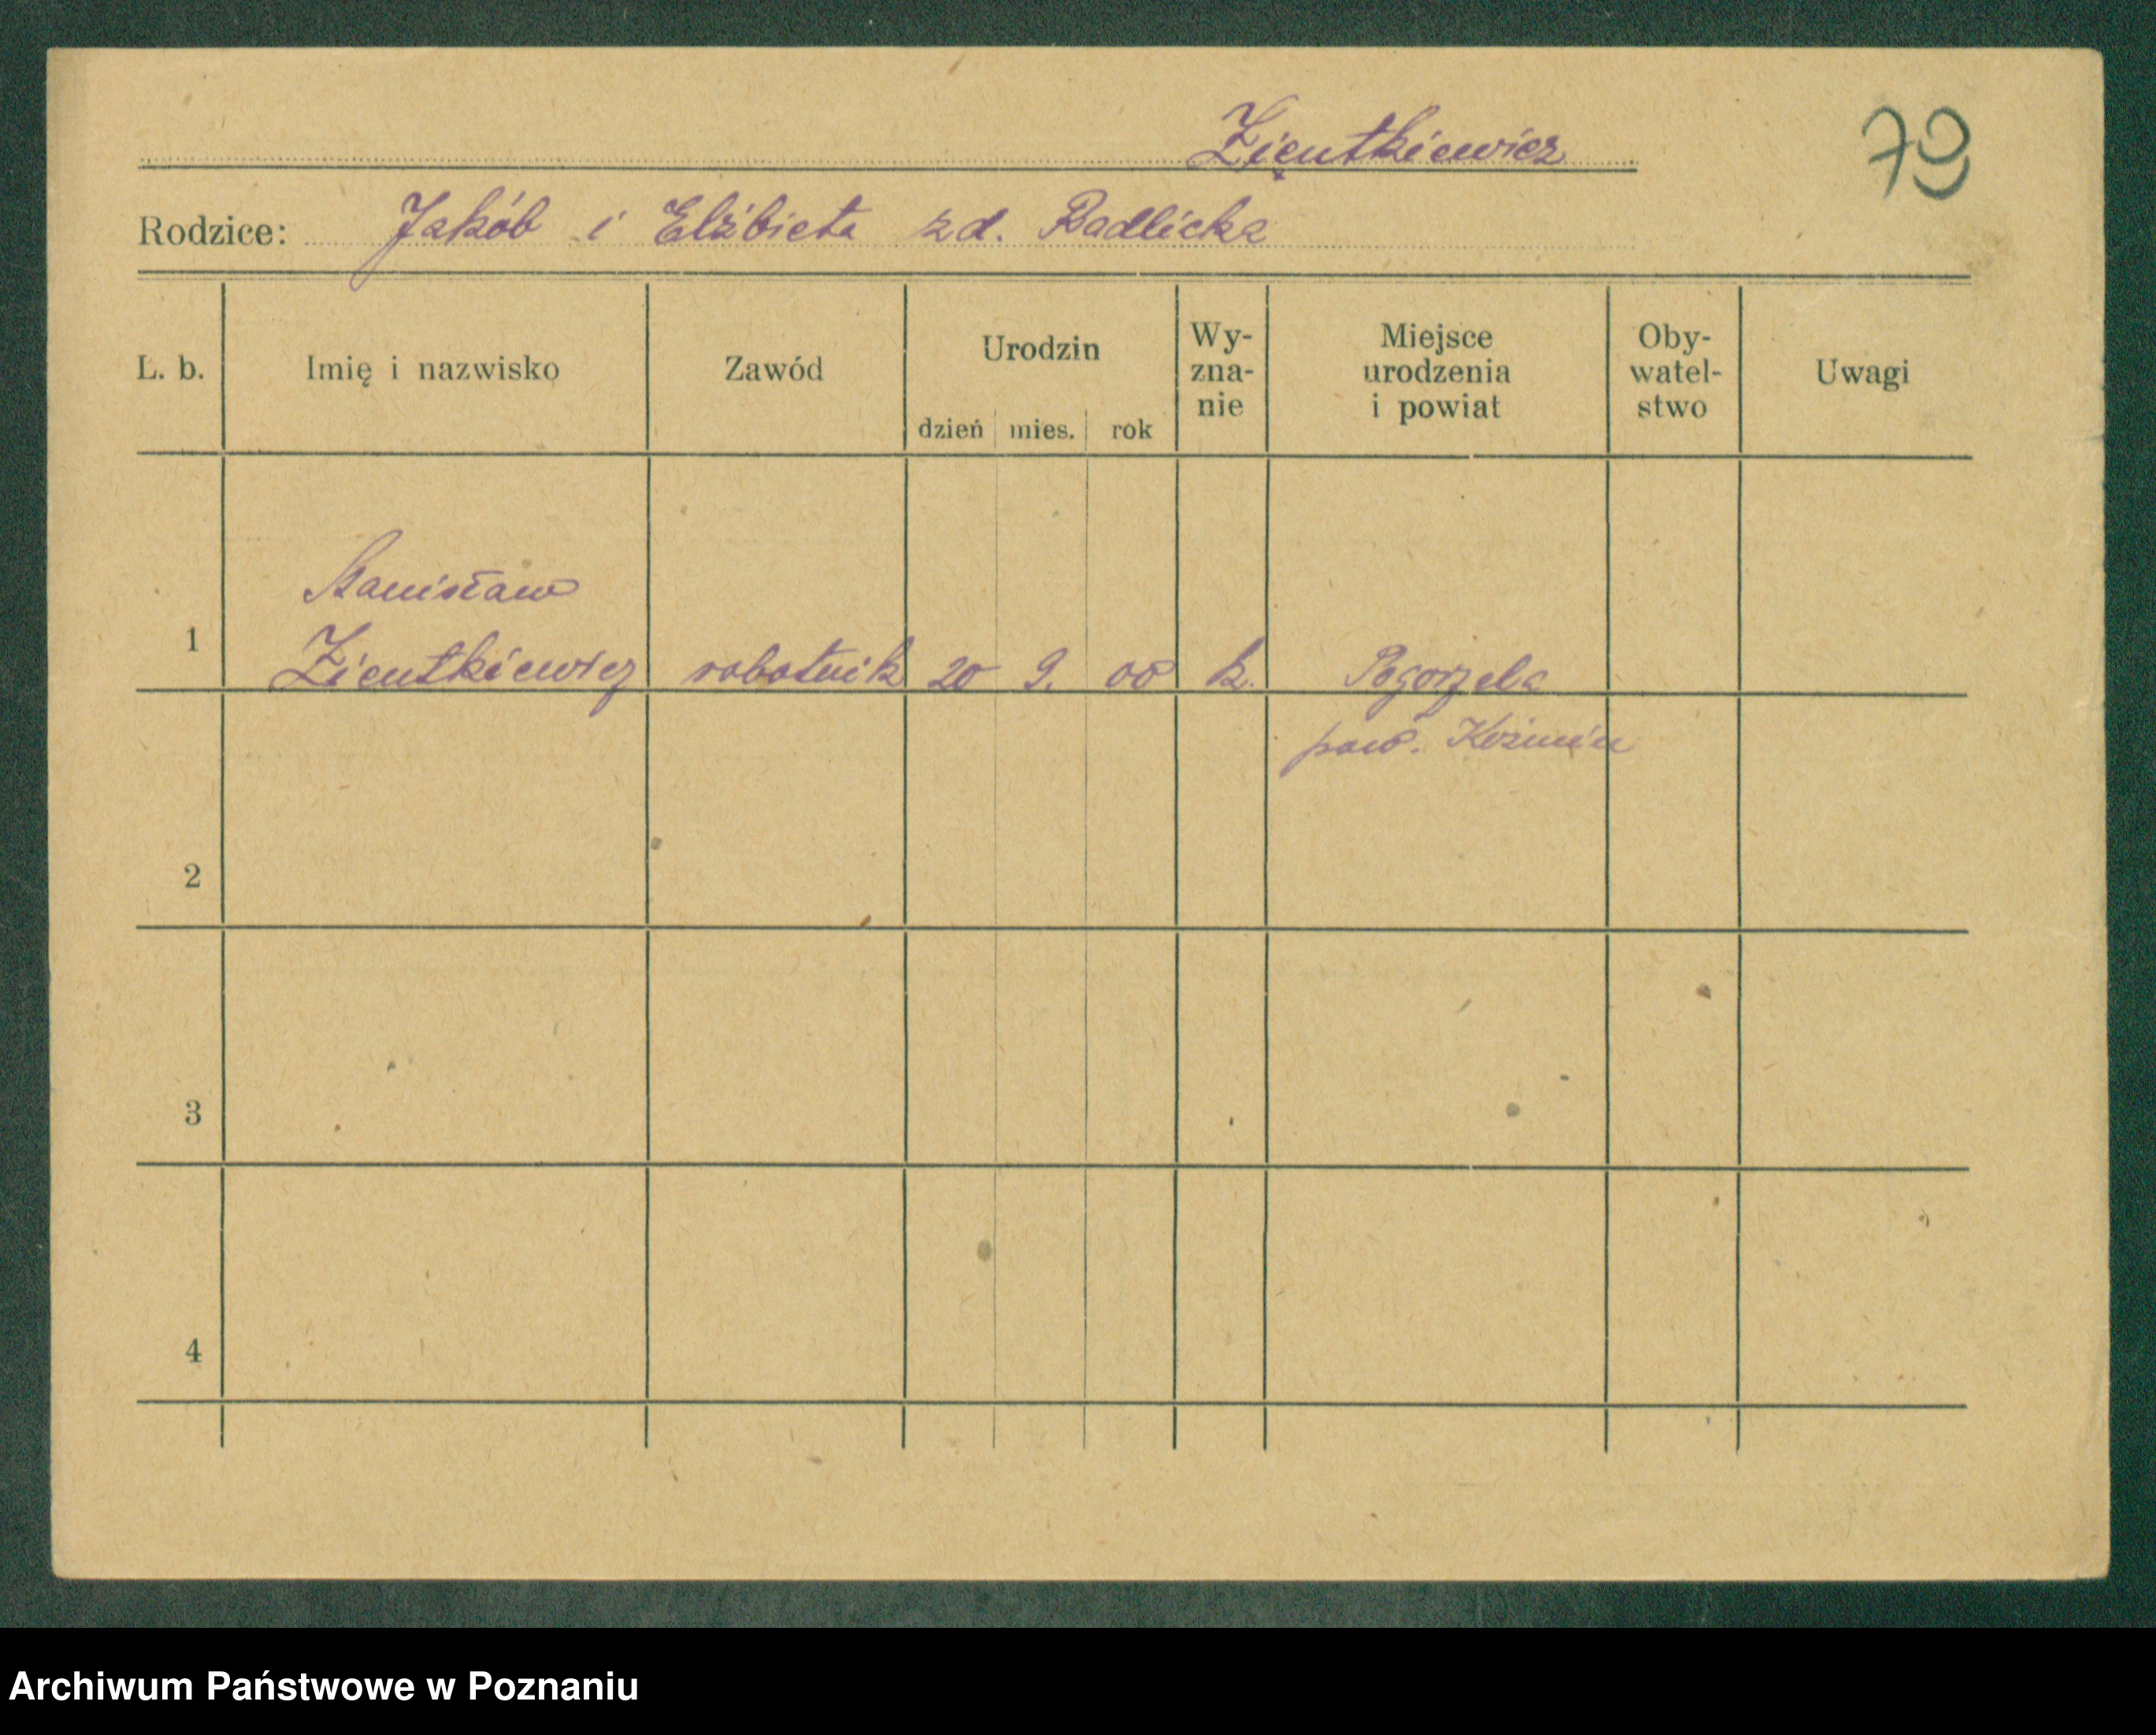 Zientkiewicz
79
Rodzice: Jakób i Elżbieta zd. Radlicka
L. b.
Imię i nazwisko
Zawód
Urodzin
dzień mies. rok
Wy-
zna-
nie
Miejsce
urodzenia
i powiat
Oby-
watel-
stwo
Uwagi
Stanisław
1 Zientkiewicz robotnik 20 9. 00 k. Pogorzela
pow. Koźmin
2
3
4
Archiwum Państwowe w Poznaniu